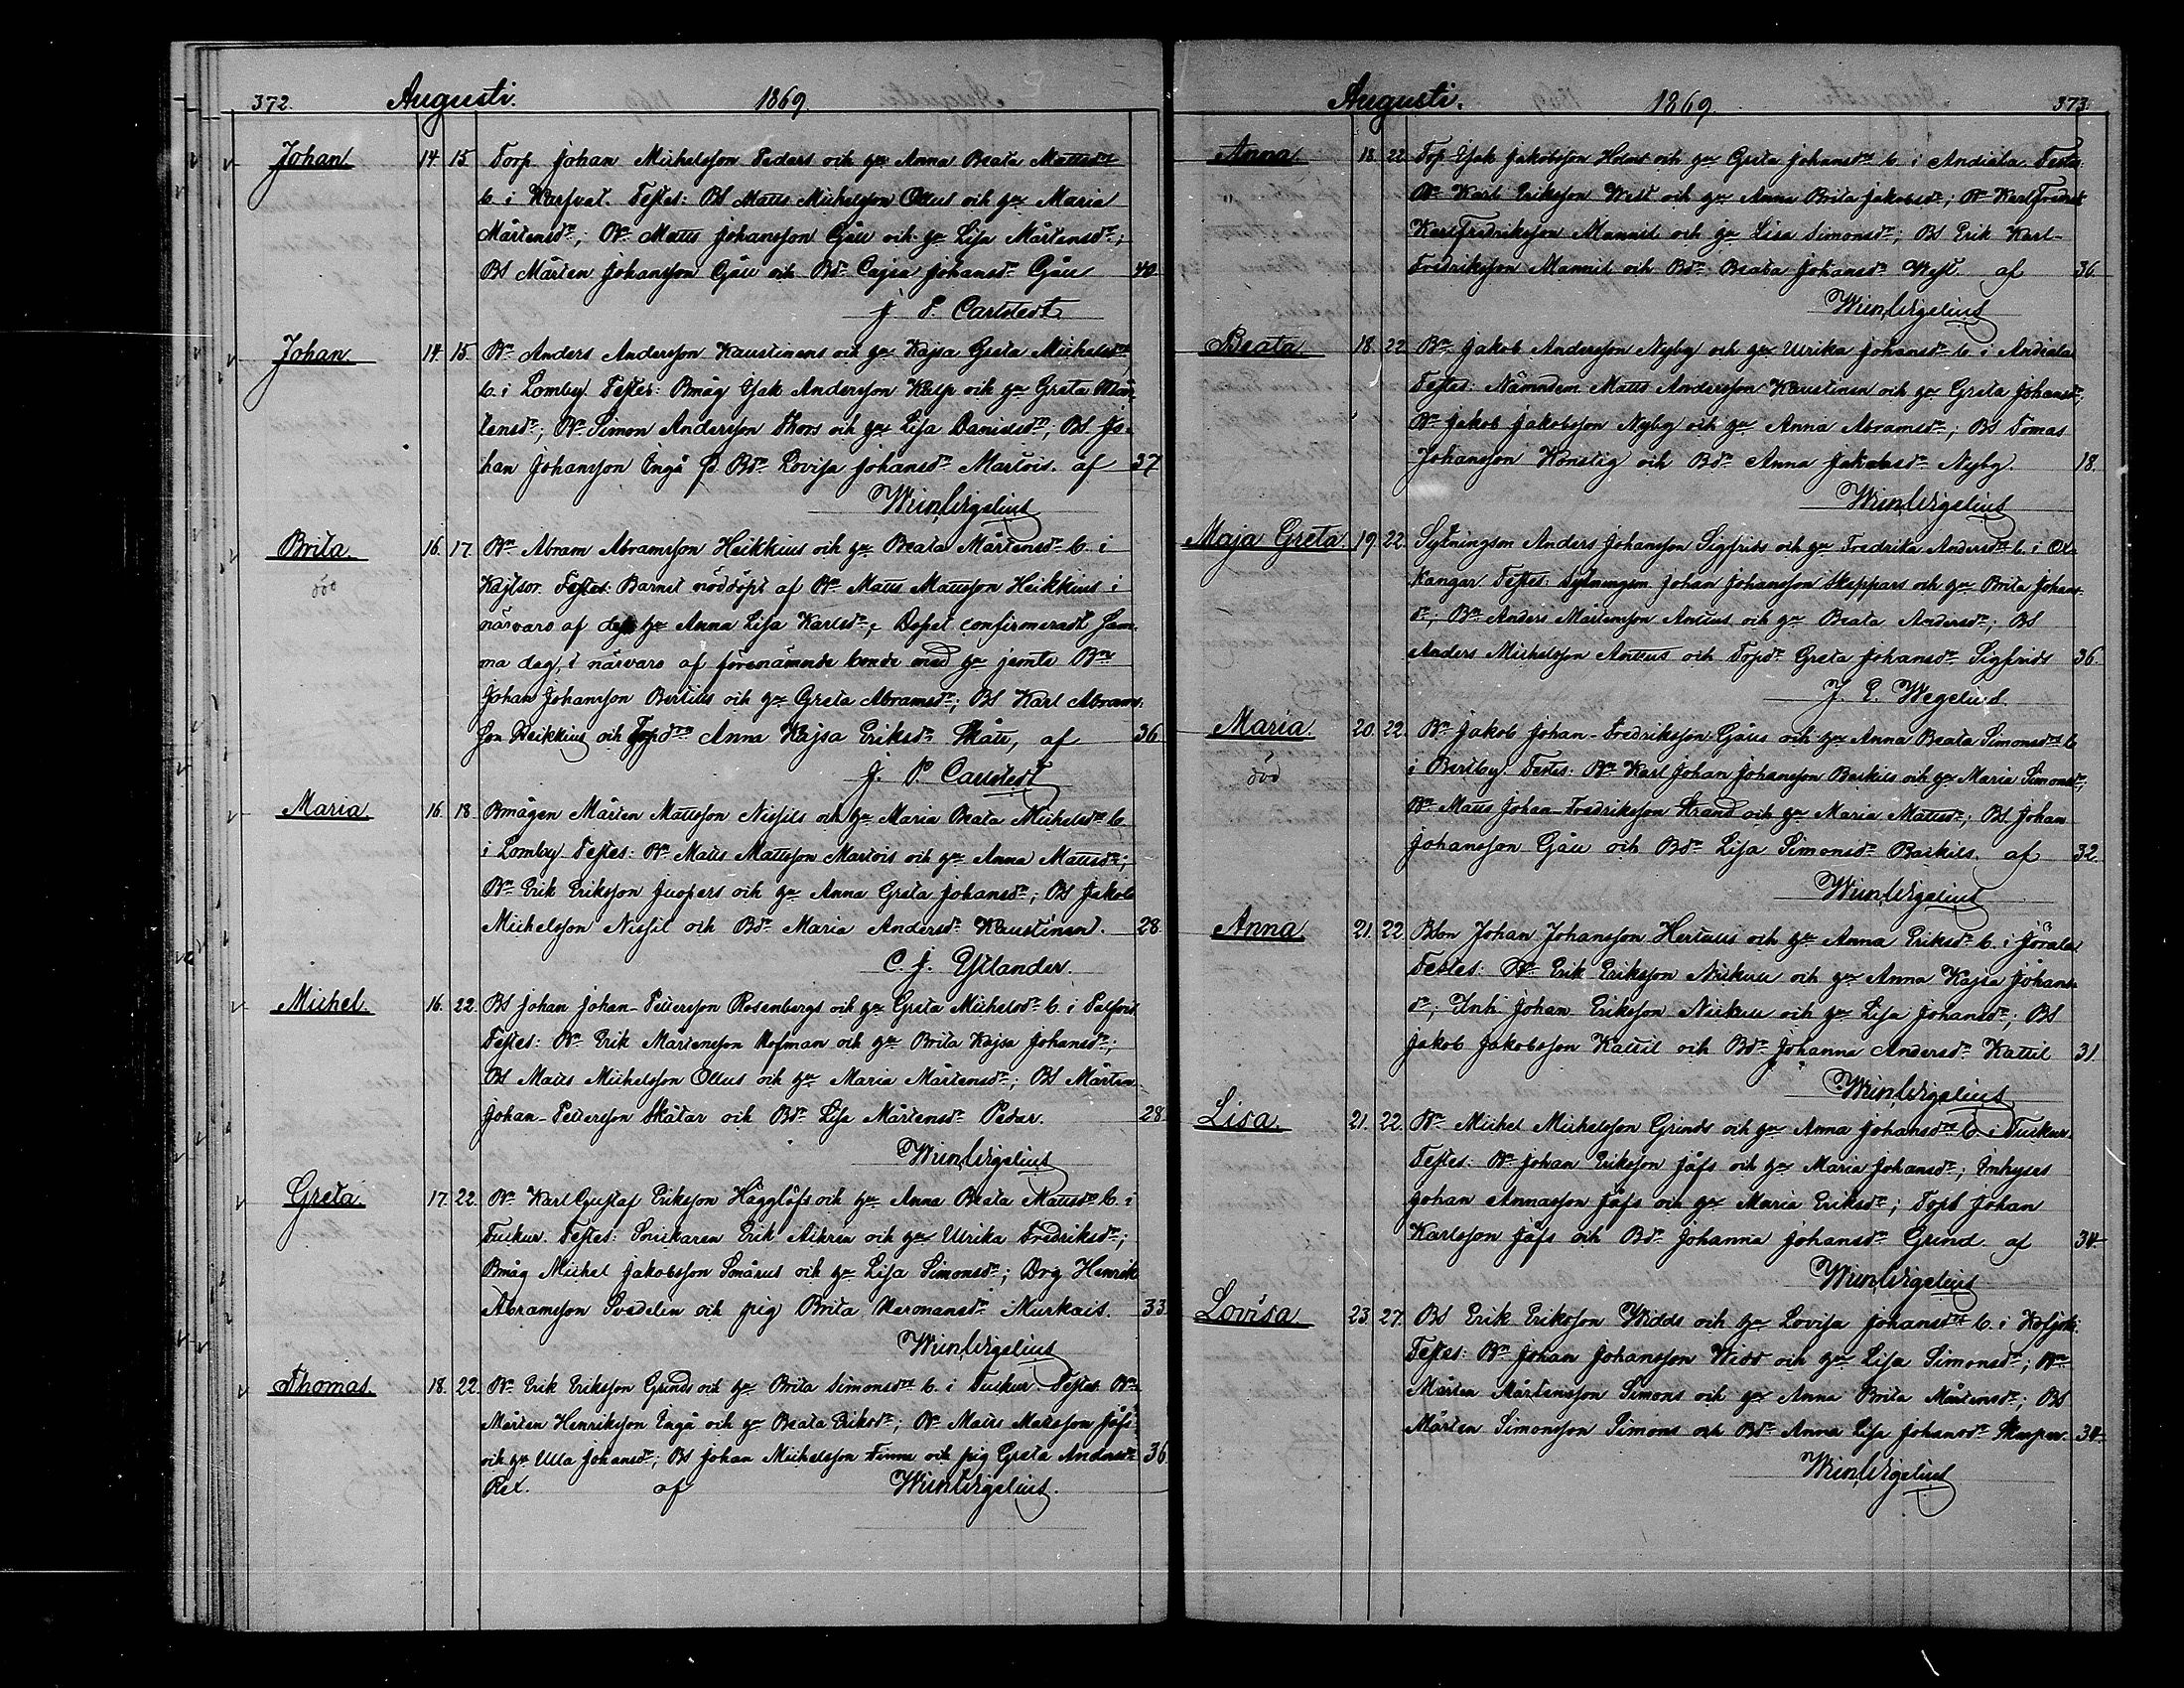 372. Augusti. 1869.
Johan 14 15. Torp. Johan Michelsson Peders och hu Anna Beata Mattsdr
b. i Karfvat. Testes: BS Matts Michelsson Ollus och hu Maria
Mårtensdr; Bn Matts Johansson Gäu och hu Lisa Mårtensdr;
BS Mårten Johansson Gäu och Bdr Cajsa Johansdr Gäu 40
J. P. Carlstedt
Johan 14. 15. Bn Anders Andersson Kaustinens och hu Kajsa Greta Michelsdr
b. i Lomby. Testes: Bmåg Isak Andersson Kulp och hu Greta Mår-
tensdr; Bn Simon Andersson Thors och hu Lisa Danielsdr; BS Jo-
han Johansson Engå o. Bdr Lovisa Johansdr Martois. af 37
Wegelius
Brita. 16. 17. Bn Abram Abramsson Heikkius och hu Beata Mårtensdr b. i
död Kaitsor. Testes: Barnet nöddöpt af Bn Matts Mattsson Heikkius i
närvaro af dess hu Anna Lisa Karlsdr; Dopet confirmeradt sam-
ma dag, i närvaro af förenämnde bonde med hu jemte Bn
Johan Johansson Bertils och hu Greta Abramsdr; BS Karl Abrams-
son Heikkius och Topdr Anna Kajsa Eriksdr Skäu, af 36
J. P. Carlstedt
Maria. 16. 18 Bmågen Mårten Mattsson Nissils och hu Maria Beata Michelsdr b.
i Lomby Testes: Bn Matts Mattsson Martois och hu Anna Mattsdr;
Bn Erik Eriksson Juopers och hu Anna Greta Johansdr; BS Jakob
Michelsson Nissil och Bdr Maria Andersdr Kaustinen. 28
C. J. Ytlander.
Michel. 16. 22. BS Johan Johan-Pettersson Rosenbergs och hu Greta Michelsdr b. i
Testes: Bn Erik Mårtensson Hofman och hu Brita Kajsa Johansdr;
BS Matts Michelsson Ollus och hu Maria Mårtensdr; BS Mårten
Johan-Pettersson Skåtar och Bdr Lisa Mårtensdr Peder. 28
Wegelius
Greta. 17. 22. Bn Karl Gustaf Eriksson Hägglöfs och hu Anna Beata Mattsdr b. i
Tuckur. Testes: Snickaren Erik och hu Ulrika Fredriksdr;
Bmåg Michel Jakobsson Smårus och hu Lisa Simonsdr; Drg Henrik
Abramsson Svedelin och pig Brita Hermansdr Murkais. 33
Wegelius
Thomas. 18. 22. Bn Erik Eriksson Grinds och hu Brita Simonsdr b. i Tuckur Testes Bn
Mårten Henriksson Engå och hu Beata Eriksdr; Bn Matts Mattsson Jåfs
och hu Ulla Johansdr; BS Johan Michelsson Finne och pig Greta Andersdr 36
Rex. af Wegelius.
Augusti. 1869. 373.
Anna 18. 22. Top Isak Jakobsson Holms och hu Greta Johansdr b. i Andiala Testes:
Bn Karl Eriksson West och hu Anna Brita Jakobsdr; Bn Karl Fredrik
Karl Fredriksson Mannil och hu Lisa Simonsdr; BS Erik Karl-
Fredriksson Mannil och Bdr Beata Johansdr West. af 36
Wegelius
Beata. 18. 22 Bn Jakob Andersson Nyby och hu Ulrika Johansdr b. i Andiala
Testes: Nämndem. Matts Andersson Kaustinen och hu Greta Johansdr;
Bn Jakob Jakobsson Nyby och hu Anna Abramsdr; BS Tomas
Johansson Konstig och Bdr Anna Jakobsdr Nyby. 18.
Wegelius
Maja Greta. 19. 22. Sytningsm Anders Johansson Sigfrids och hu Fredrika Andersdr b. i Ox-
kangar. Testes: Sytningsm. Johan Johansson Skeppars och hu Brita Johans-
dr; Bn Anders Mårtensson Antus och hu Beata Andersdr; BS
Anders Michelsson Antus och Topdr Greta Johansdr Sigfrids 36.
J. E. Wegelius.
Maria. 20. 22. Bn Jakob Johan-Fredriksson Gäus och hu Anna Beata Simonsdr b
död i Bertby. Testes: Bn Karl Johan Johansson Backils och hu Maria Simonsdr;
Bn Matts Johan-Fredriksson Strand och hu Maria Mattsdr; BS Johan
Johansson Gäu och Bdr Lisa Simonsdr Backils. af 32.
Wegelius
Anna. 21. 22. Bbon Johan Johansson Hertais och hu Anna Eriksdr b. i Jörala
Testes: Bn Erik Eriksson och hu Anna Kajsa Johans-
dr; Inh. Johan Eriksson och hu Lisa Johansdr; BS
Jakob Jakobsson Kattil och Bdr Johanna Andersdr Kattil 31.
Wegelius
Lisa. 21. 22. Bn Michel Michelsson Grinds och hu Anna Johansdr b. i Tuckur.
Testes: Bn Johan Eriksson Jåfs och hu Maria Johansdr; Inhyses
Johan Annasson Jåfs och hu Maria Eriksdr; TopS Johan
Karlsson Jåfs och Bdr Johanna Johansdr Grind. af 34
Wegelius
Lovisa. 23. 27. BS Erik Eriksson Widds och hu Lovisa Johansdr b. i
Testes: Bn Johan Johansson Widd och hu Lisa Simonsdr; Bn
Mårten Mårtensson Simons och hu Anna Brita Mårtensdr; BS
Mårten Simonsson Simons och Bdr Anna Lisa Johansdr 34
Wegelius